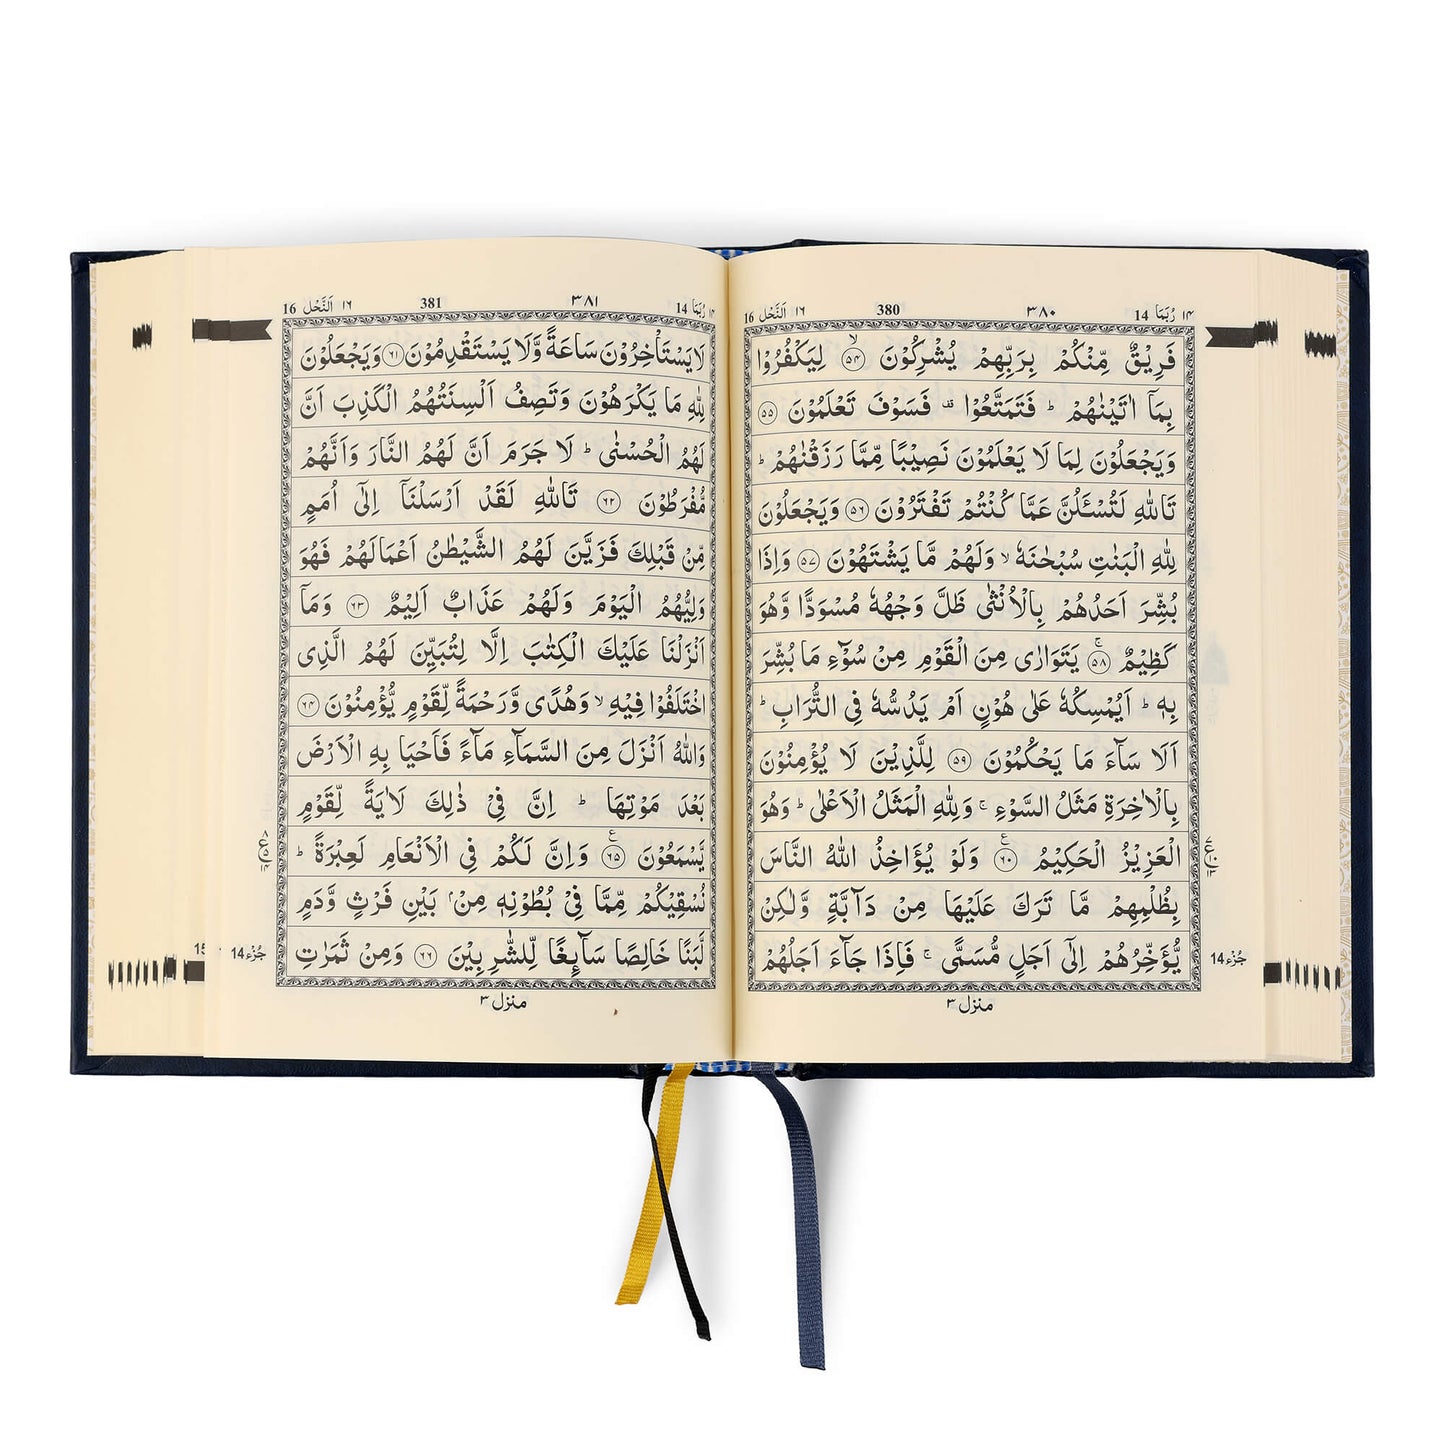 ۱۴ رُبَمَا 14 ۳۸۰ 380 ۱۶ اَلنَّحْل 16
فَرِيْقٌ مِّنْكُمْ بِرَبِّهِمْ يُشْرِكُوْنَ ۙ‏﴿۵۴﴾ لِيَكْفُرُوْا
بِمَاۤ اٰتَيْنٰهُمْ‌ ؕ فَتَمَتَّعُوْا قف فَسَوْفَ تَعْلَمُوْنَ‏ ﴿۵۵﴾
وَيَجْعَلُوْنَ لِمَا لَا يَعْلَمُوْنَ نَصِيْبًا مِّمَّا رَزَقْنٰهُمْ‌ ؕ
تَاللّٰهِ لَتُسْـَٔلُنَّ عَمَّا كُنْتُمْ تَفْتَرُوْنَ‏ ﴿۵۶﴾ وَيَجْعَلُوْنَ
لِلّٰهِ الْبَنٰتِ سُبْحٰنَهٗ‌ ۙ وَلَهُمْ مَّا يَشْتَهُوْنَ‏ ﴿۵۷﴾ وَاِذَا
بُشِّرَ اَحَدُهُمْ بِالْاُنْثٰى ظَلَّ وَجْهُهٗ مُسْوَدًّا وَّهُوَ
كَظِيْمٌ‌ۚ‏ ﴿۵۸﴾ يَتَوَارٰى مِنَ الْقَوْمِ مِنْ سُوْۤءِ مَا بُشِّرَ
بِهٖ ؕ اَيُمْسِكُهٗ عَلٰى هُوْنٍ اَمْ يَدُسُّهٗ فِى التُّرَابِ‌ ؕ
اَلَا سَآءَ مَا يَحْكُمُوْنَ‏ ﴿۵۹﴾ لِلَّذِيْنَ لَا يُؤْمِنُوْنَ
بِالْاٰخِرَةِ مَثَلُ السَّوْءِ‌ۚ وَلِلّٰهِ الْمَثَلُ الْاَعْلٰى‌ ؕ وَهُوَ
الْعَزِيْزُ الْحَكِيْمُ‏ ۚ ﴿۶۰﴾ وَلَوْ يُؤَاخِذُ اللّٰهُ النَّاسَ
بِظُلْمِهِمْ مَّا تَرَكَ عَلَيْهَا مِنْ دَآبَّةٍ وَّلٰكِنْ
يُّؤَخِّرُهُمْ اِلٰٓى اَجَلٍ مُّسَمًّى‌ۚ فَاِذَا جَآءَ اَجَلُهُمْ
منزل ۳
جُزْء 14
۱۴ رُبَمَا 14 ۳۸۱ 381 ۱۶ اَلنَّحْل 16
لَا يَسْتَاْخِرُوْنَ سَاعَةً وَّلَا يَسْتَقْدِمُوْنَ‏ ﴿۶۱﴾ وَيَجْعَلُوْنَ
لِلّٰهِ مَا يَكْرَهُوْنَ وَتَصِفُ اَلْسِنَتُهُمُ الْكَذِبَ اَنَّ
لَهُمُ الْحُسْنٰى‌ ؕ لَا جَرَمَ اَنَّ لَهُمُ النَّارَ وَاَنَّهُمْ
مُّفْرَطُوْنَ‏ ﴿۶۲﴾ تَاللّٰهِ لَقَدْ اَرْسَلْنَاۤ اِلٰٓى اُمَمٍ
مِّنْ قَبْلِكَ فَزَيَّنَ لَهُمُ الشَّيْطٰنُ اَعْمَالَهُمْ فَهُوَ
وَلِيُّهُمُ الْيَوْمَ وَلَهُمْ عَذَابٌ اَلِيْمٌ‏ ﴿۶۳﴾ وَمَاۤ
اَنْزَلْنَا عَلَيْكَ الْكِتٰبَ اِلَّا لِتُبَيِّنَ لَهُمُ الَّذِى
اخْتَلَفُوْا فِيْهِ‌ ۙ وَهُدًى وَّرَحْمَةً لِّقَوْمٍ يُّؤْمِنُوْنَ‏ ﴿۶۴﴾
وَاللّٰهُ اَنْزَلَ مِنَ السَّمَآءِ مَآءً فَاَحْيَا بِهِ الْاَرْضَ
بَعْدَ مَوْتِهَا‌ ؕ اِنَّ فِىْ ذٰلِكَ لَاٰيَةً لِّقَوْمٍ
يَّسْمَعُوْنَ‏ ﴿۶۵﴾ وَاِنَّ لَكُمْ فِى الْاَنْعَامِ لَعِبْرَةً‌ ؕ
نُّسْقِيْكُمْ مِّمَّا فِىْ بُطُوْنِهٖ مِنْۢ بَيْنِ فَرْثٍ وَّدَمٍ
لَّبَنًا خَالِصًا سَآئِغًا لِّلشّٰرِبِيْنَ‏ ﴿۶۶﴾ وَمِنْ ثَمَرٰتِ
منزل ۳
جُزْء 14
15